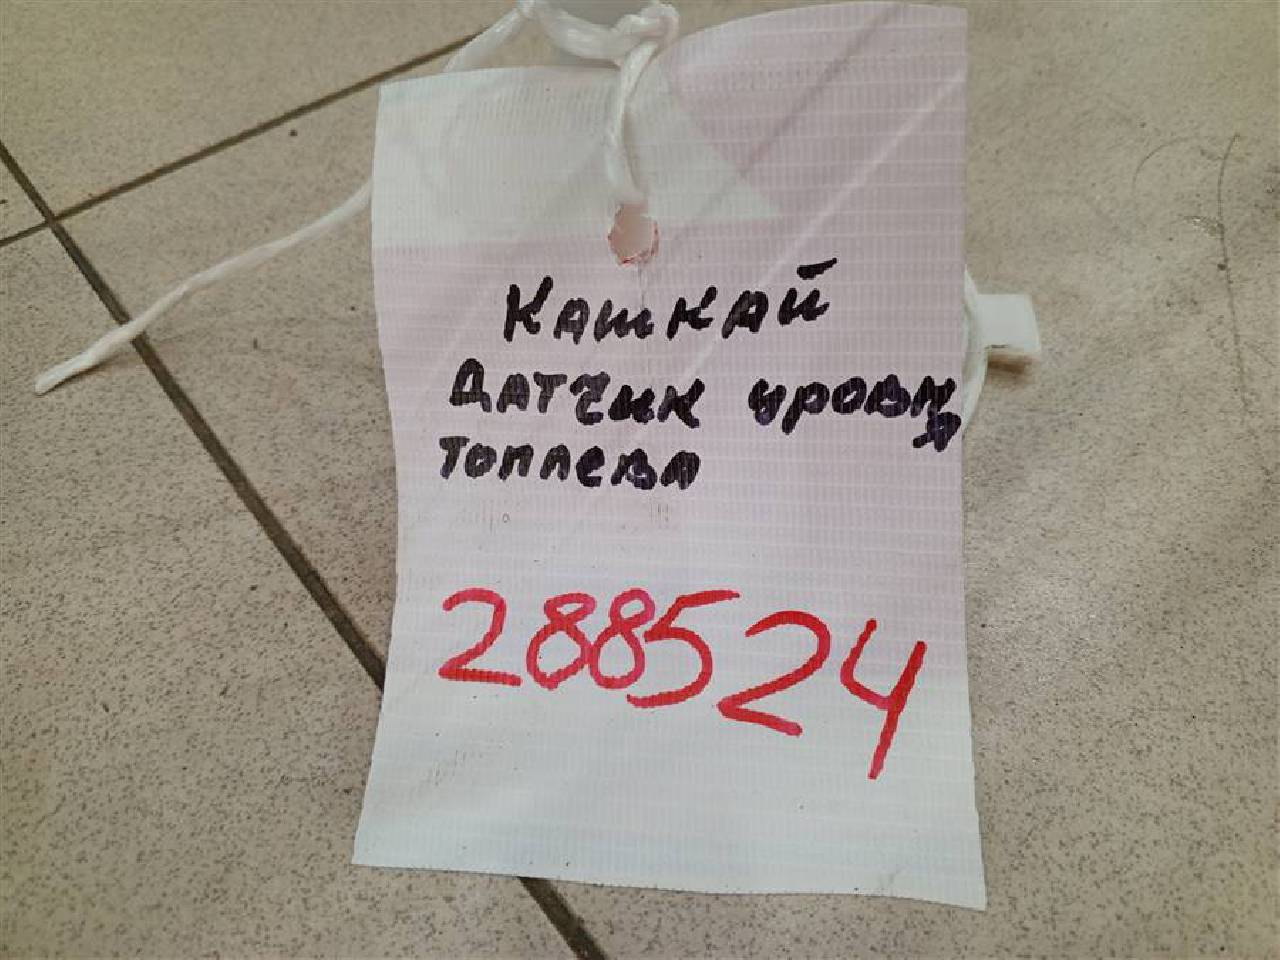 Кашкай
Датчик уровня
топлева
288524